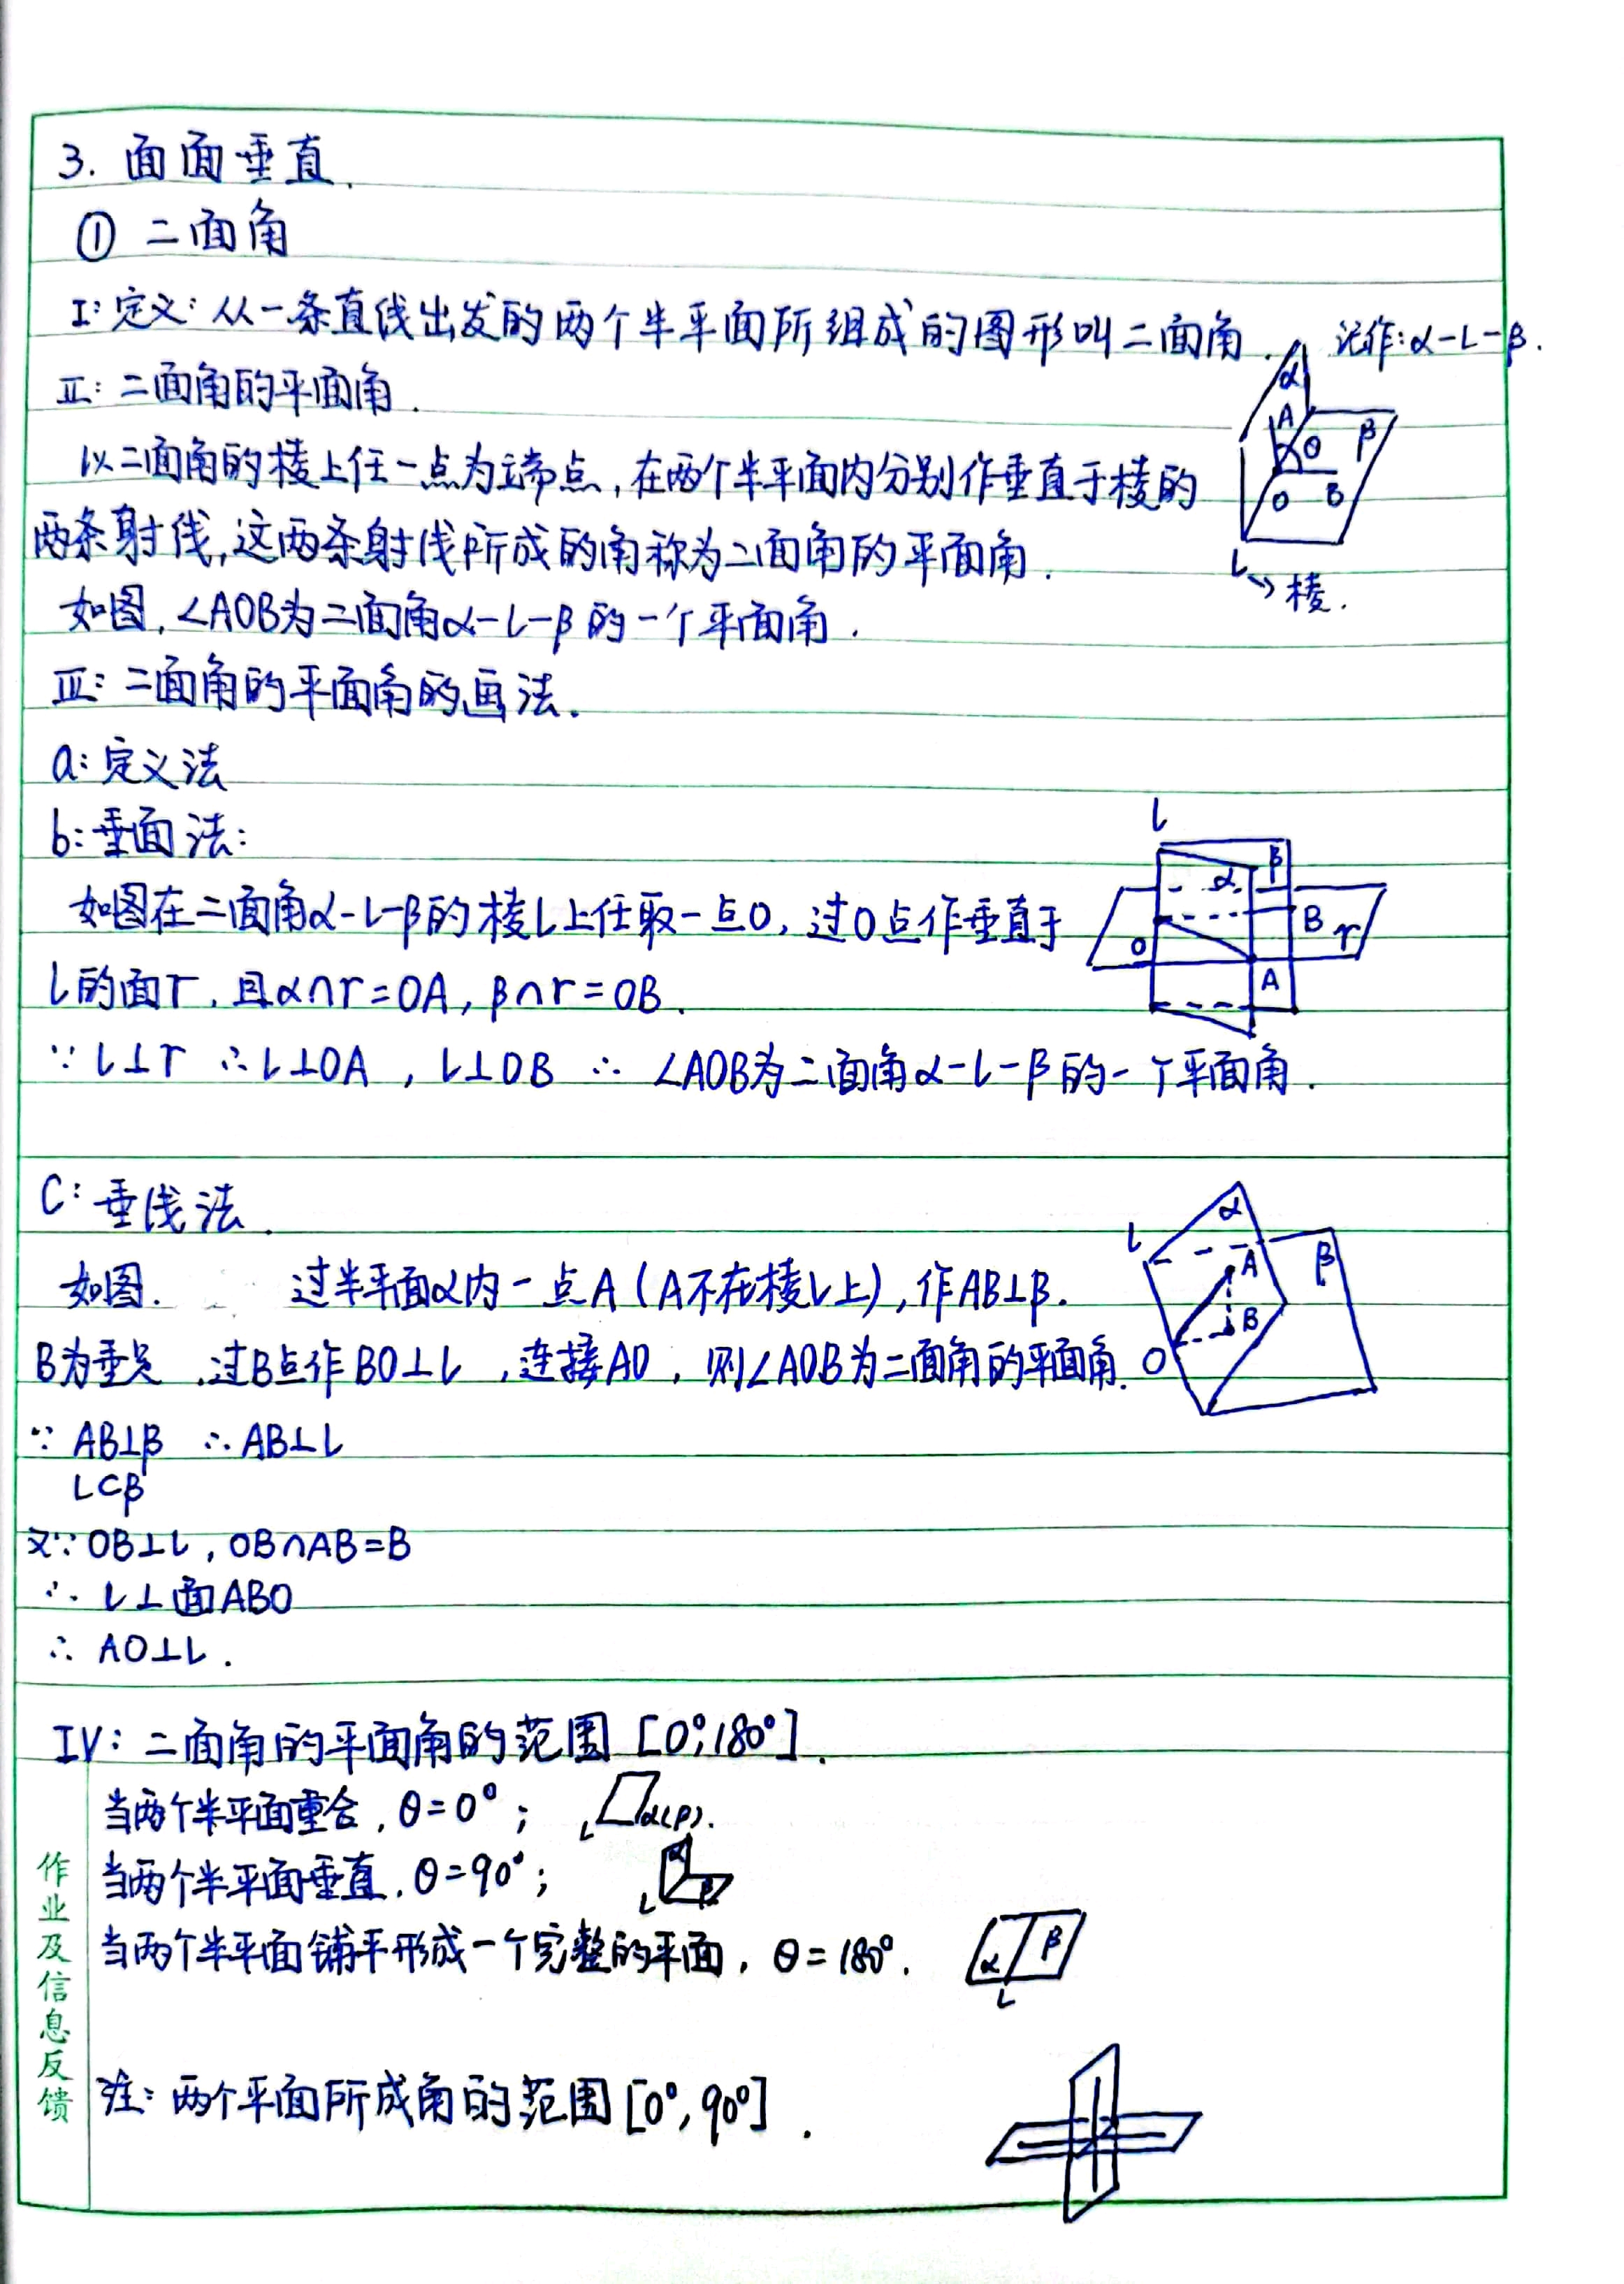 3. 面面垂直.
① 二面角
I: 定义: 从一条直线出发的两个半平面所组成的图形叫二面角. 记作: α-l-β.
II: 二面角的平面角.
以二面角的棱上任一点为端点, 在两个半平面内分别作垂直于棱的
两条射线, 这两条射线所成的角称为二面角的平面角.
如图, ∠AOB为二面角α-l-β的一个平面角.
α
A
θ
β
O
B
l → 棱.
III: 二面角的平面角的画法.
a: 定义法
b: 垂面法:
如图在二面角α-l-β的棱l上任取一点O, 过O点作垂直于
l的面r, 且α∩r=OA, β∩r=OB.
∵ l⊥r ∴ l⊥OA, l⊥OB ∴ ∠AOB为二面角α-l-β的一个平面角.
l
β
α
B
r
O
A
C: 垂线法.
如图. 过半平面α内一点A (A不在棱l上), 作AB⊥β.
B为垂足, 过B点作BO⊥l, 连接AO, 则∠AOB为二面角的平面角.
∵ AB⊥β ∴ AB⊥l
l⊂β
又∵ OB⊥l, OB∩AB=B
∴ l⊥面ABO
∴ AO⊥l.
α
l
A
β
B
O
IV: 二面角的平面角的范围 [0°,180°].
当两个半平面重合, θ=0°; l α(β).
当两个半平面垂直, θ=90°; α l β
当两个半平面铺平形成一个完整的平面, θ=180°. α β l
注: 两个平面所成角的范围[0°,90°].
作业及信息反馈